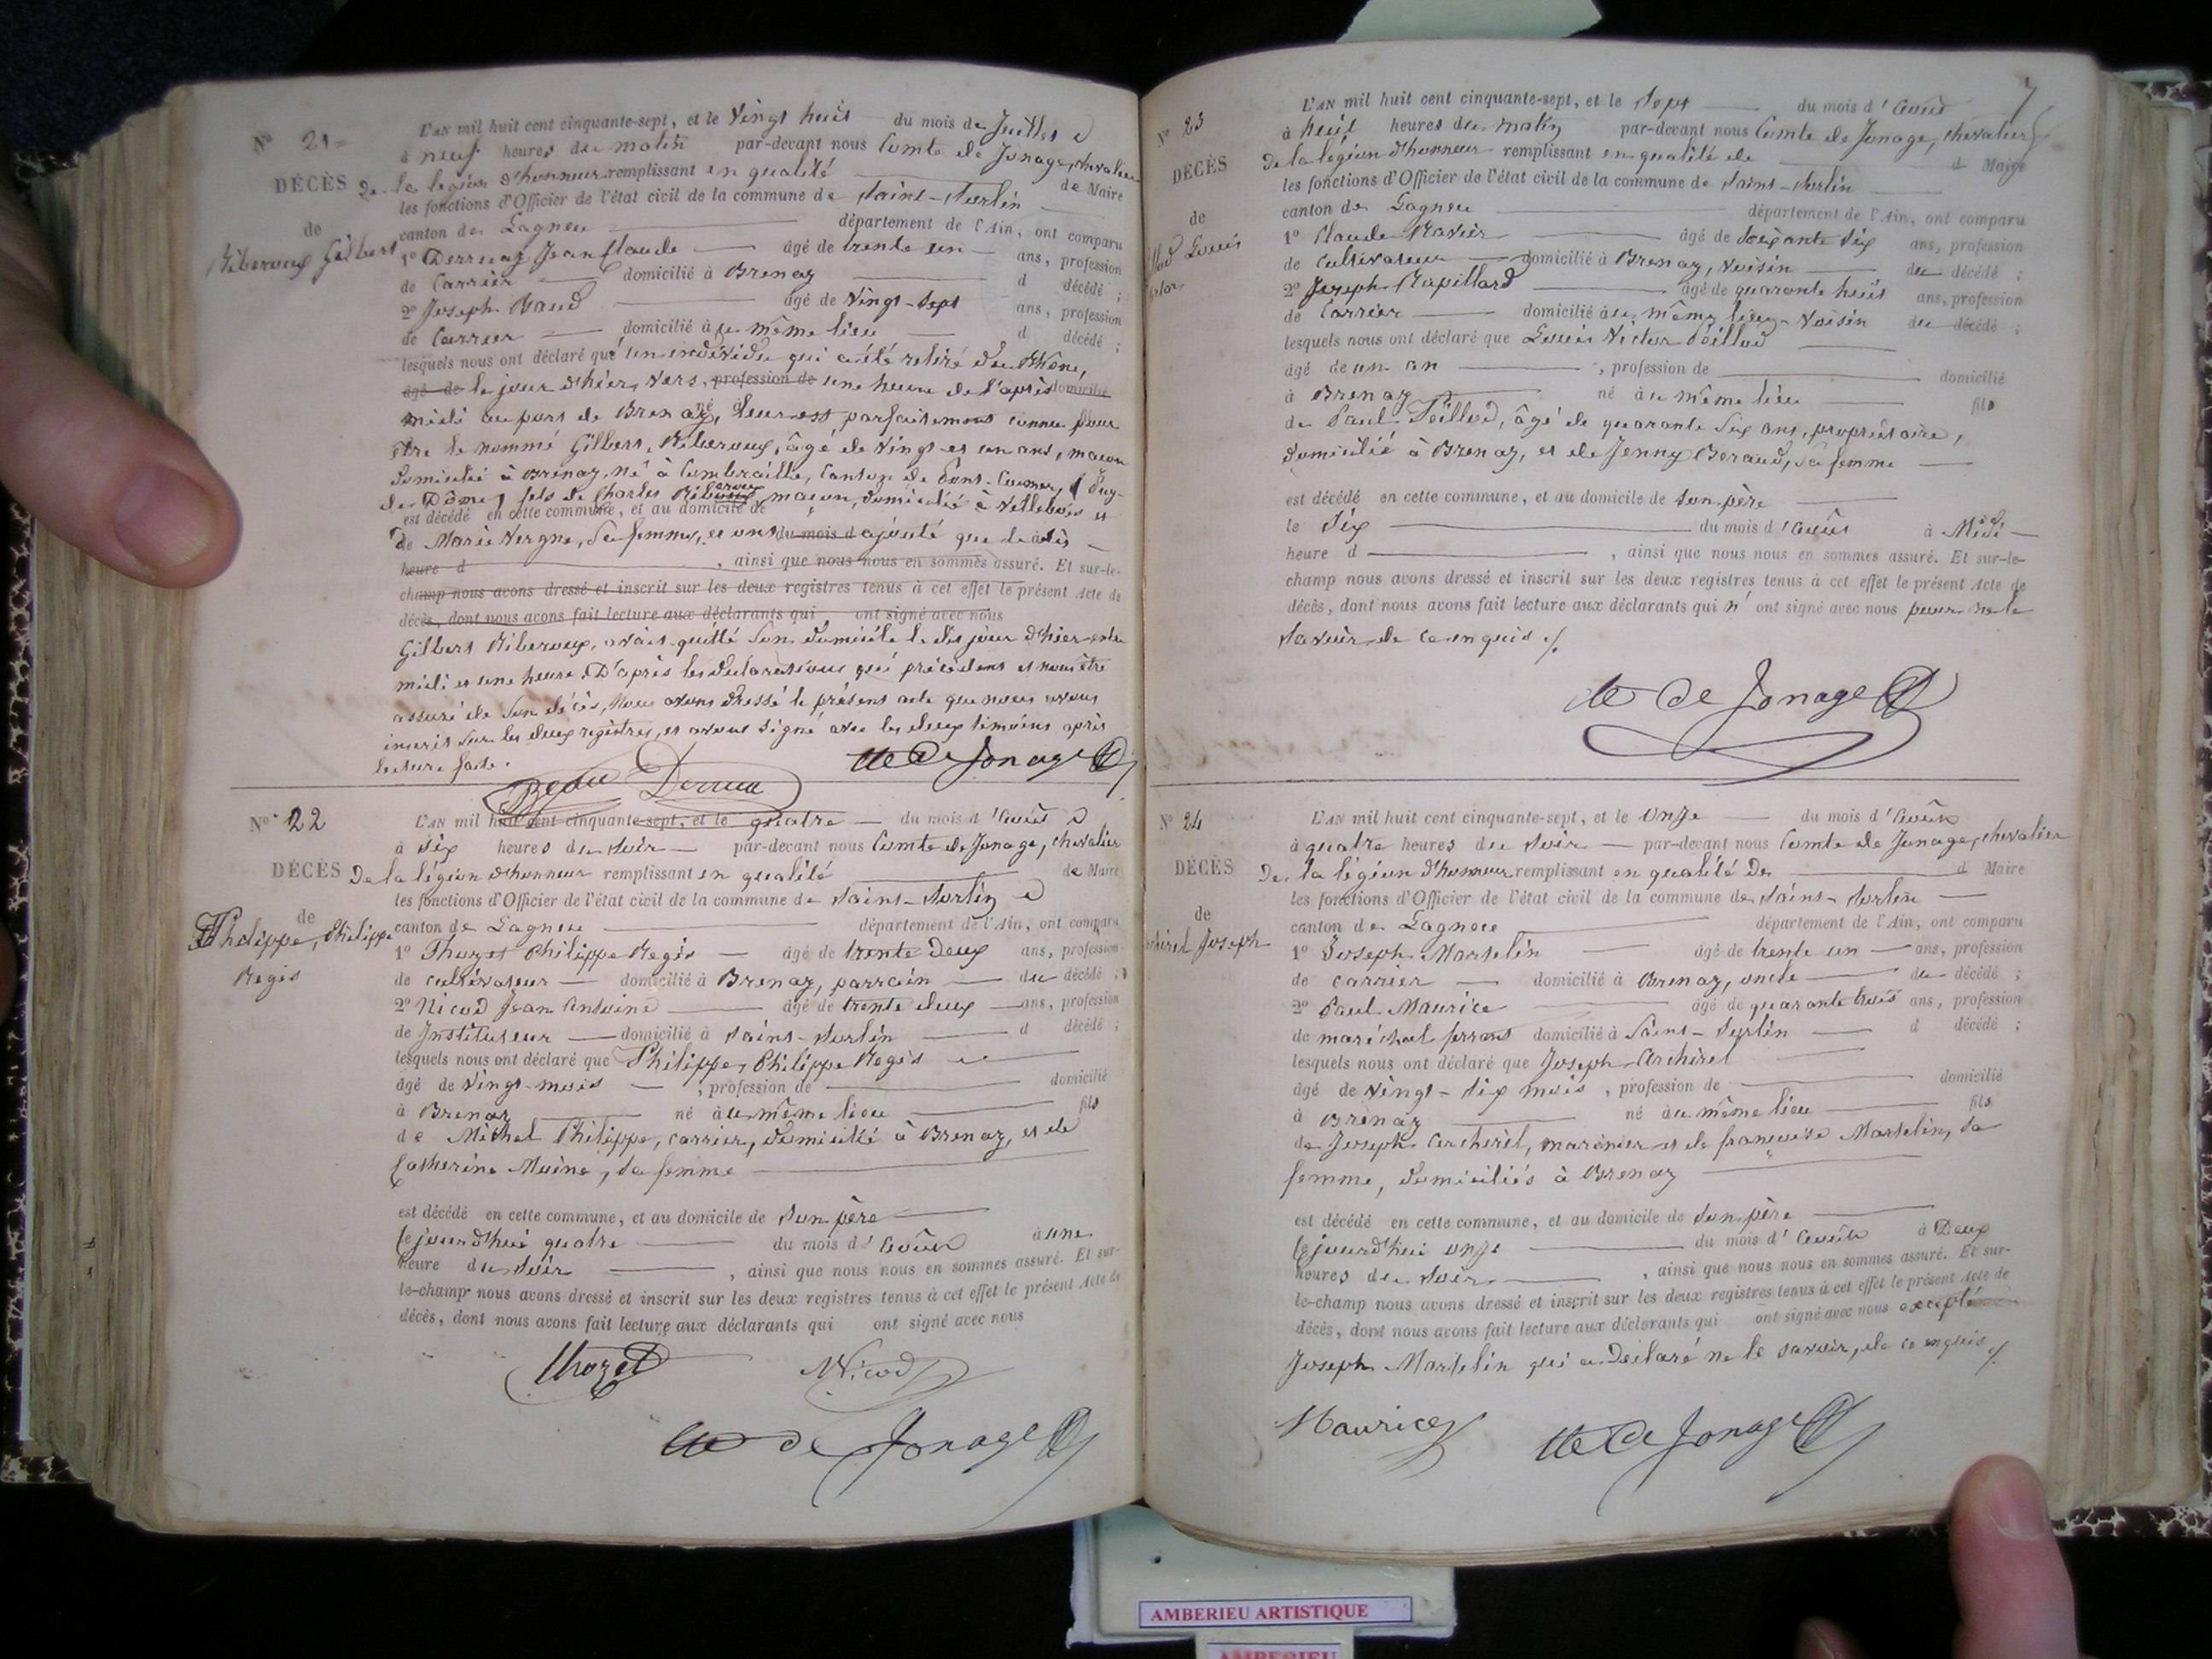 N° 21
DÉCÈS
de
Riberoux Gilbert
L'AN mil huit cent cinquante-sept, et le vingt huit du mois de Juillet
à neuf heures du matin par-devant nous Comte de Jonage, chevalier
de la légion d'honneur remplissant en qualité de Maire
les fonctions d'Officier de l'état civil de la commune de Saint-Sorlin
canton de Lagneu département de l'Ain, ont comparu
1° Derruaz Jean Claude âgé de trente un ans, profession
de Carrier domicilié à Brenaz d décédé ;
2° Joseph Baud âgé de vingt-sept ans, profession
de Carrier domicilié à u même lieu d décédé ;
lesquels nous ont déclaré qu'un individu qui a été retiré du Rhône,
âgé de le jour d'hier, vers profession de une heure de l'après domicilié
midi au port de Brenaz, leur est parfaitement connu pour
être le nommé Gilbert Riberoux, âgé de vingt et un ans, maçon
domicilié à Brenaz, né à Combraille, canton de Pont-Caumur, Puy-
de-Dôme, fils de Charles Riberoux, maçon, domicilié à et
est décédé en cette commune, et au domicile de
de Marie Vergne, sa femme, et ont du mois d ajouté que le dit
heure d , ainsi que nous nous en sommes assuré. Et sur-le-
champ nous avons dressé et inscrit sur les deux registres tenus à cet effet le présent Acte de
décès, dont nous avons fait lecture aux déclarants qui ont signé avec nous
Gilbert Riberoux, avait quitté son domicile le dit jour d'hier entre
midi et une heure. D'après les déclarations qui précèdent et nous être
assuré de son décès, nous avons dressé le présent acte que nous avons
inscrit sur les deux registres, et avons signé avec les deux témoins après
lecture faite.
Derrua
Cte de Jonage
N° 22
DÉCÈS
de
Philippe, Philippe
Regis
L'AN mil huit cent cinquante-sept, et le quatre du mois d'Août
à six heures du soir par-devant nous Comte de Jonage, chevalier
De la légion d'honneur remplissant en qualité de Maire
les fonctions d'Officier de l'état civil de la commune de Saint-Sorlin
canton de Lagneu département de l'Ain, ont comparu
1° Thozet Philippe Regis âgé de trente deux ans, profession
de cultivateur domicilié à Brenaz, parrain du décédé ;
2° Nicod Jean Antoine âgé de trente deux ans, profession
de Instituteur domicilié à Saint-Sorlin d décédé ;
lesquels nous ont déclaré que Philippe, Philippe Regis
âgé de vingt mois , profession de domicilié
à Brenaz né à u même lieu fils
de Michel Philippe, carrier, domicilié à Brenaz, et de
Catherine Moine, sa femme
est décédé en cette commune, et au domicile de son père
cejourd'hui quatre du mois d'Août à une
heure du soir , ainsi que nous nous en sommes assuré. Et sur-
le-champ nous avons dressé et inscrit sur les deux registres tenus à cet effet le présent Acte de
décès, dont nous avons fait lecture aux déclarants qui ont signé avec nous
Thozet Nicod
Cte de Jonage
7
N° 23
DÉCÈS
de
Louis
L'AN mil huit cent cinquante-sept, et le Sept du mois d'Août
à huit heures du matin par-devant nous Comte de Jonage, chevalier
de la légion d'honneur remplissant en qualité de d Maire
les fonctions d'Officier de l'état civil de la commune de Saint-Sorlin
canton de Lagneu département de l'Ain, ont comparu
1° Claude Ravier âgé de soixante six ans, profession
de Cultivateur domicilié à Brenaz, voisin du décédé ;
2° Joseph Rapillard âgé de quarante huit ans, profession
de Carrier domicilié au même lieu, voisin du décédé ;
lesquels nous ont déclaré que Louis Victor Peillod
âgé de un an , profession de domicilié
à Brenaz né à u même lieu fils
de Paul Peillod, âgé de quarante six ans, propriétaire,
domicilié à Brenaz, et de Jenny Beraud, sa femme
est décédé en cette commune, et au domicile de son père
le six du mois d'Août à Midi
heure d , ainsi que nous nous en sommes assuré. Et sur-le-
champ nous avons dressé et inscrit sur les deux registres tenus à cet effet le présent Acte de
décès, dont nous avons fait lecture aux déclarants qui n'ont signé avec nous pour ne le
savoir de ce enquis ./.
Cte de Jonage
N° 24
DÉCÈS
de
Joseph
L'AN mil huit cent cinquante-sept, et le onze du mois d'Août
à quatre heures du soir par-devant nous Comte de Jonage, chevalier
De la légion d'honneur remplissant en qualité De d Maire
les fonctions d'Officier de l'état civil de la commune de Saint-Sorlin
canton de Lagneu département de l'Ain, ont comparu
1° Joseph Martelin âgé de trente un ans, profession
de carrier domicilié à Brenaz, oncle du décédé ;
2° Paul Maurice âgé de quarante trois ans, profession
de maréchal ferrant domicilié à Saint-Sorlin d décédé ;
lesquels nous ont déclaré que Joseph Archirel
âgé de vingt-six mois , profession de domicilié
à Brenaz né à u même lieu fils
de Joseph Archirel, marinier et de françoise Martelin, sa
femme, domiciliés à Brenaz
est décédé en cette commune, et au domicile de son père
cejourd'hui onze du mois d'Août à Deux
heures du soir , ainsi que nous nous en sommes assuré. Et sur-
le-champ nous avons dressé et inscrit sur les deux registres tenus à cet effet le présent Acte de
décès, dont nous avons fait lecture aux déclarants qui ont signé avec nous excepté
Joseph Martelin qui a déclaré ne le savoir, de ce enquis ./.
Maurice Cte de Jonage
AMBERIEU ARTISTIQUE
AMBERIEU